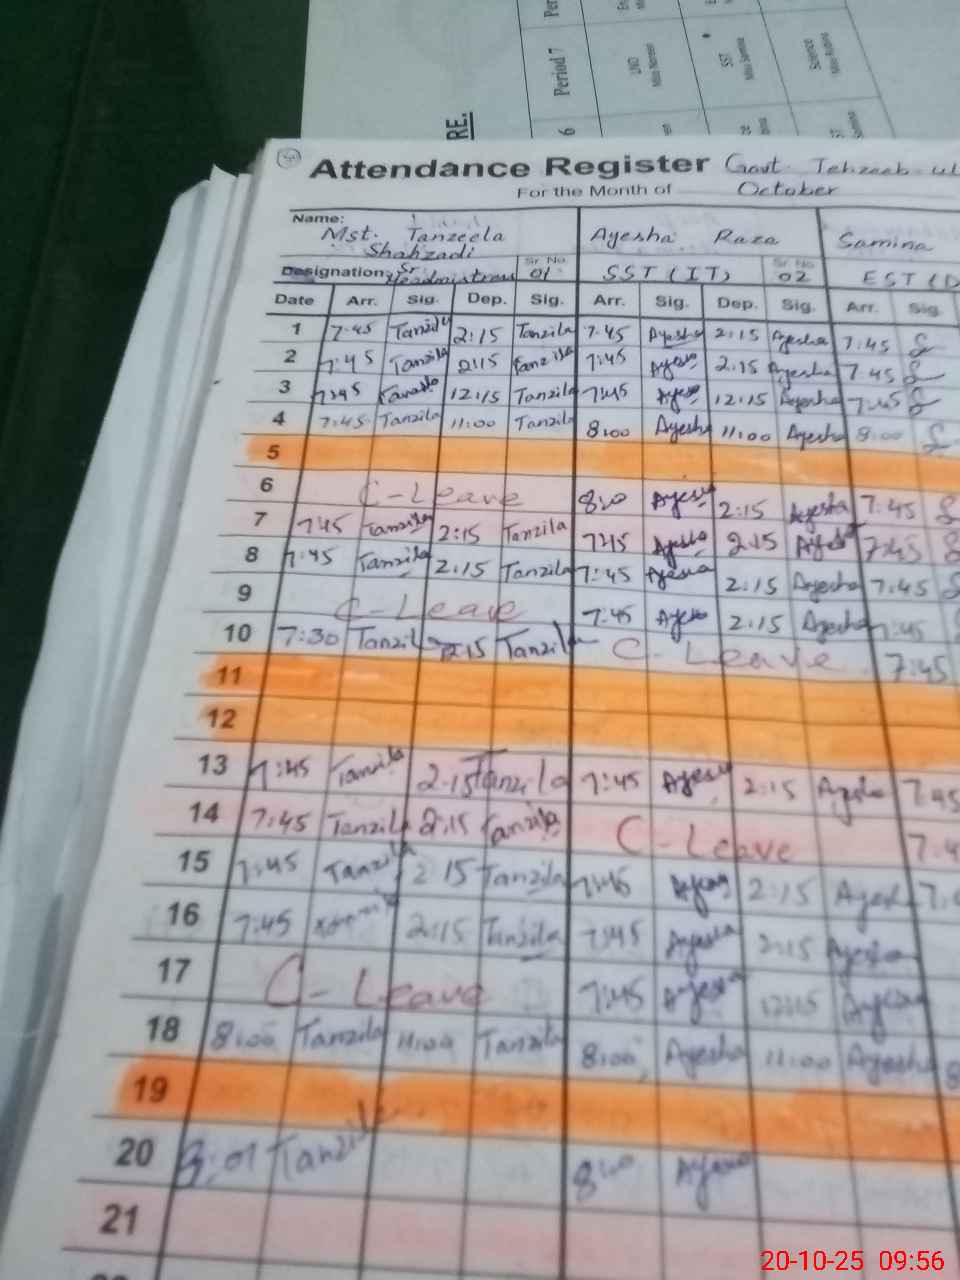 Period 7
6
RE.
Attendance Register Govt. Tehzeeb-ul
For the Month of October
Name: Mst. Tanzeela Shahzadi Ayesha Raza Samina
Designation: Sr. Headmistress Sr No. 01 SST (IT) Sr No. 02 EST (D
Date Arr. Sig. Dep. Sig. Arr. Sig. Dep. Sig. Arr. Sig.
1 7:45 Tanzila 2:15 Tanzila 7:45 Ayesha 2:15 Ayesha 7:45
2 7:45 Tanzila 2:15 Tanzila 7:45 Ayesha 2:15 Ayesha 7:45
3 7:45 Tanzila 12:15 Tanzila 7:45 Ayesha 12:15 Ayesha 7:45
4 7:45 Tanzila 11:00 Tanzila 8:00 Ayesha 11:00 Ayesha 8:00
5
6 C-Leave 8:00 Ayesha 2:15 Ayesha 7:45
7 7:45 Tanzila 2:15 Tanzila 7:45 Ayesha 2:15 Ayesha 7:45
8 7:45 Tanzila 2:15 Tanzila 7:45 Ayesha 2:15 Ayesha 7:45
9 C-Leave 7:45 Ayesha 2:15 Ayesha 7:45
10 7:30 Tanzila 12:15 Tanzila C-Leave 7:45
11
12
13 7:45 Tanzila 2:15 Tanzila 7:45 Ayesha 2:15 Ayesha 7:45
14 7:45 Tanzila 2:15 Tanzila C-Leave 7:4
15 7:45 Tanzila 2:15 Tanzila 7:45 Ayesha 2:15 Ayesha
16 7:45 2:15 Tanzila 7:45 Ayesha 2:15 Ayesha
17 C-Leave 7:45 Ayesha 12:15 Ayesha
18 8:00 Tanzila 11:00 Tanzila 8:00 Ayesha 11:00 Ayesha 8
19
20 8:01 Tanzila 8:00 Ayesha
21
20-10-25 09:56